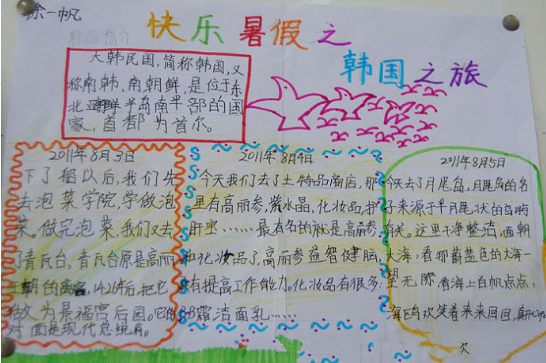 徐一帆
快乐暑假之
韩国之旅
大韩民国，简称韩国，又
称南韩、南朝鲜，是位于东
北亚朝鲜半岛南半部的国
家，首都为首尔。
2011年8月3日
下了船以后，我们先
去泡菜学院，学做泡
菜，做完泡菜，我们又去
了青瓦台，青瓦台原是高丽
王朝的离宫，1426年后把它
改为景福宫后园。它的
对面是现代总统府。
2011年8月4日
今天我们去了土特品商店，那
里有高丽参，紫水晶，化妆品，护
肝宝……最有名的就是高丽参
和化妆品了，高丽参益智健脑，
有提高工作能力。化妆品有很多，
霜，洁面乳……
2011年8月5日
今天去了月尾岛，月尾岛的名
子来源于半月尾状的岛
。这里干净整洁，面朝
大海，看那蔚蓝色的大海一
望无际，看海上白帆点点，
海鸥欢笑着来来回回，真